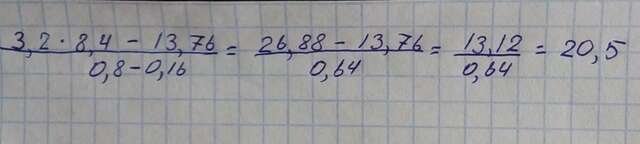 (3,2 · 8,4 − 13,76)/(0,8 − 0,16) = (26,88 − 13,76)/0,64 = 13,12/0,64 = 20,5